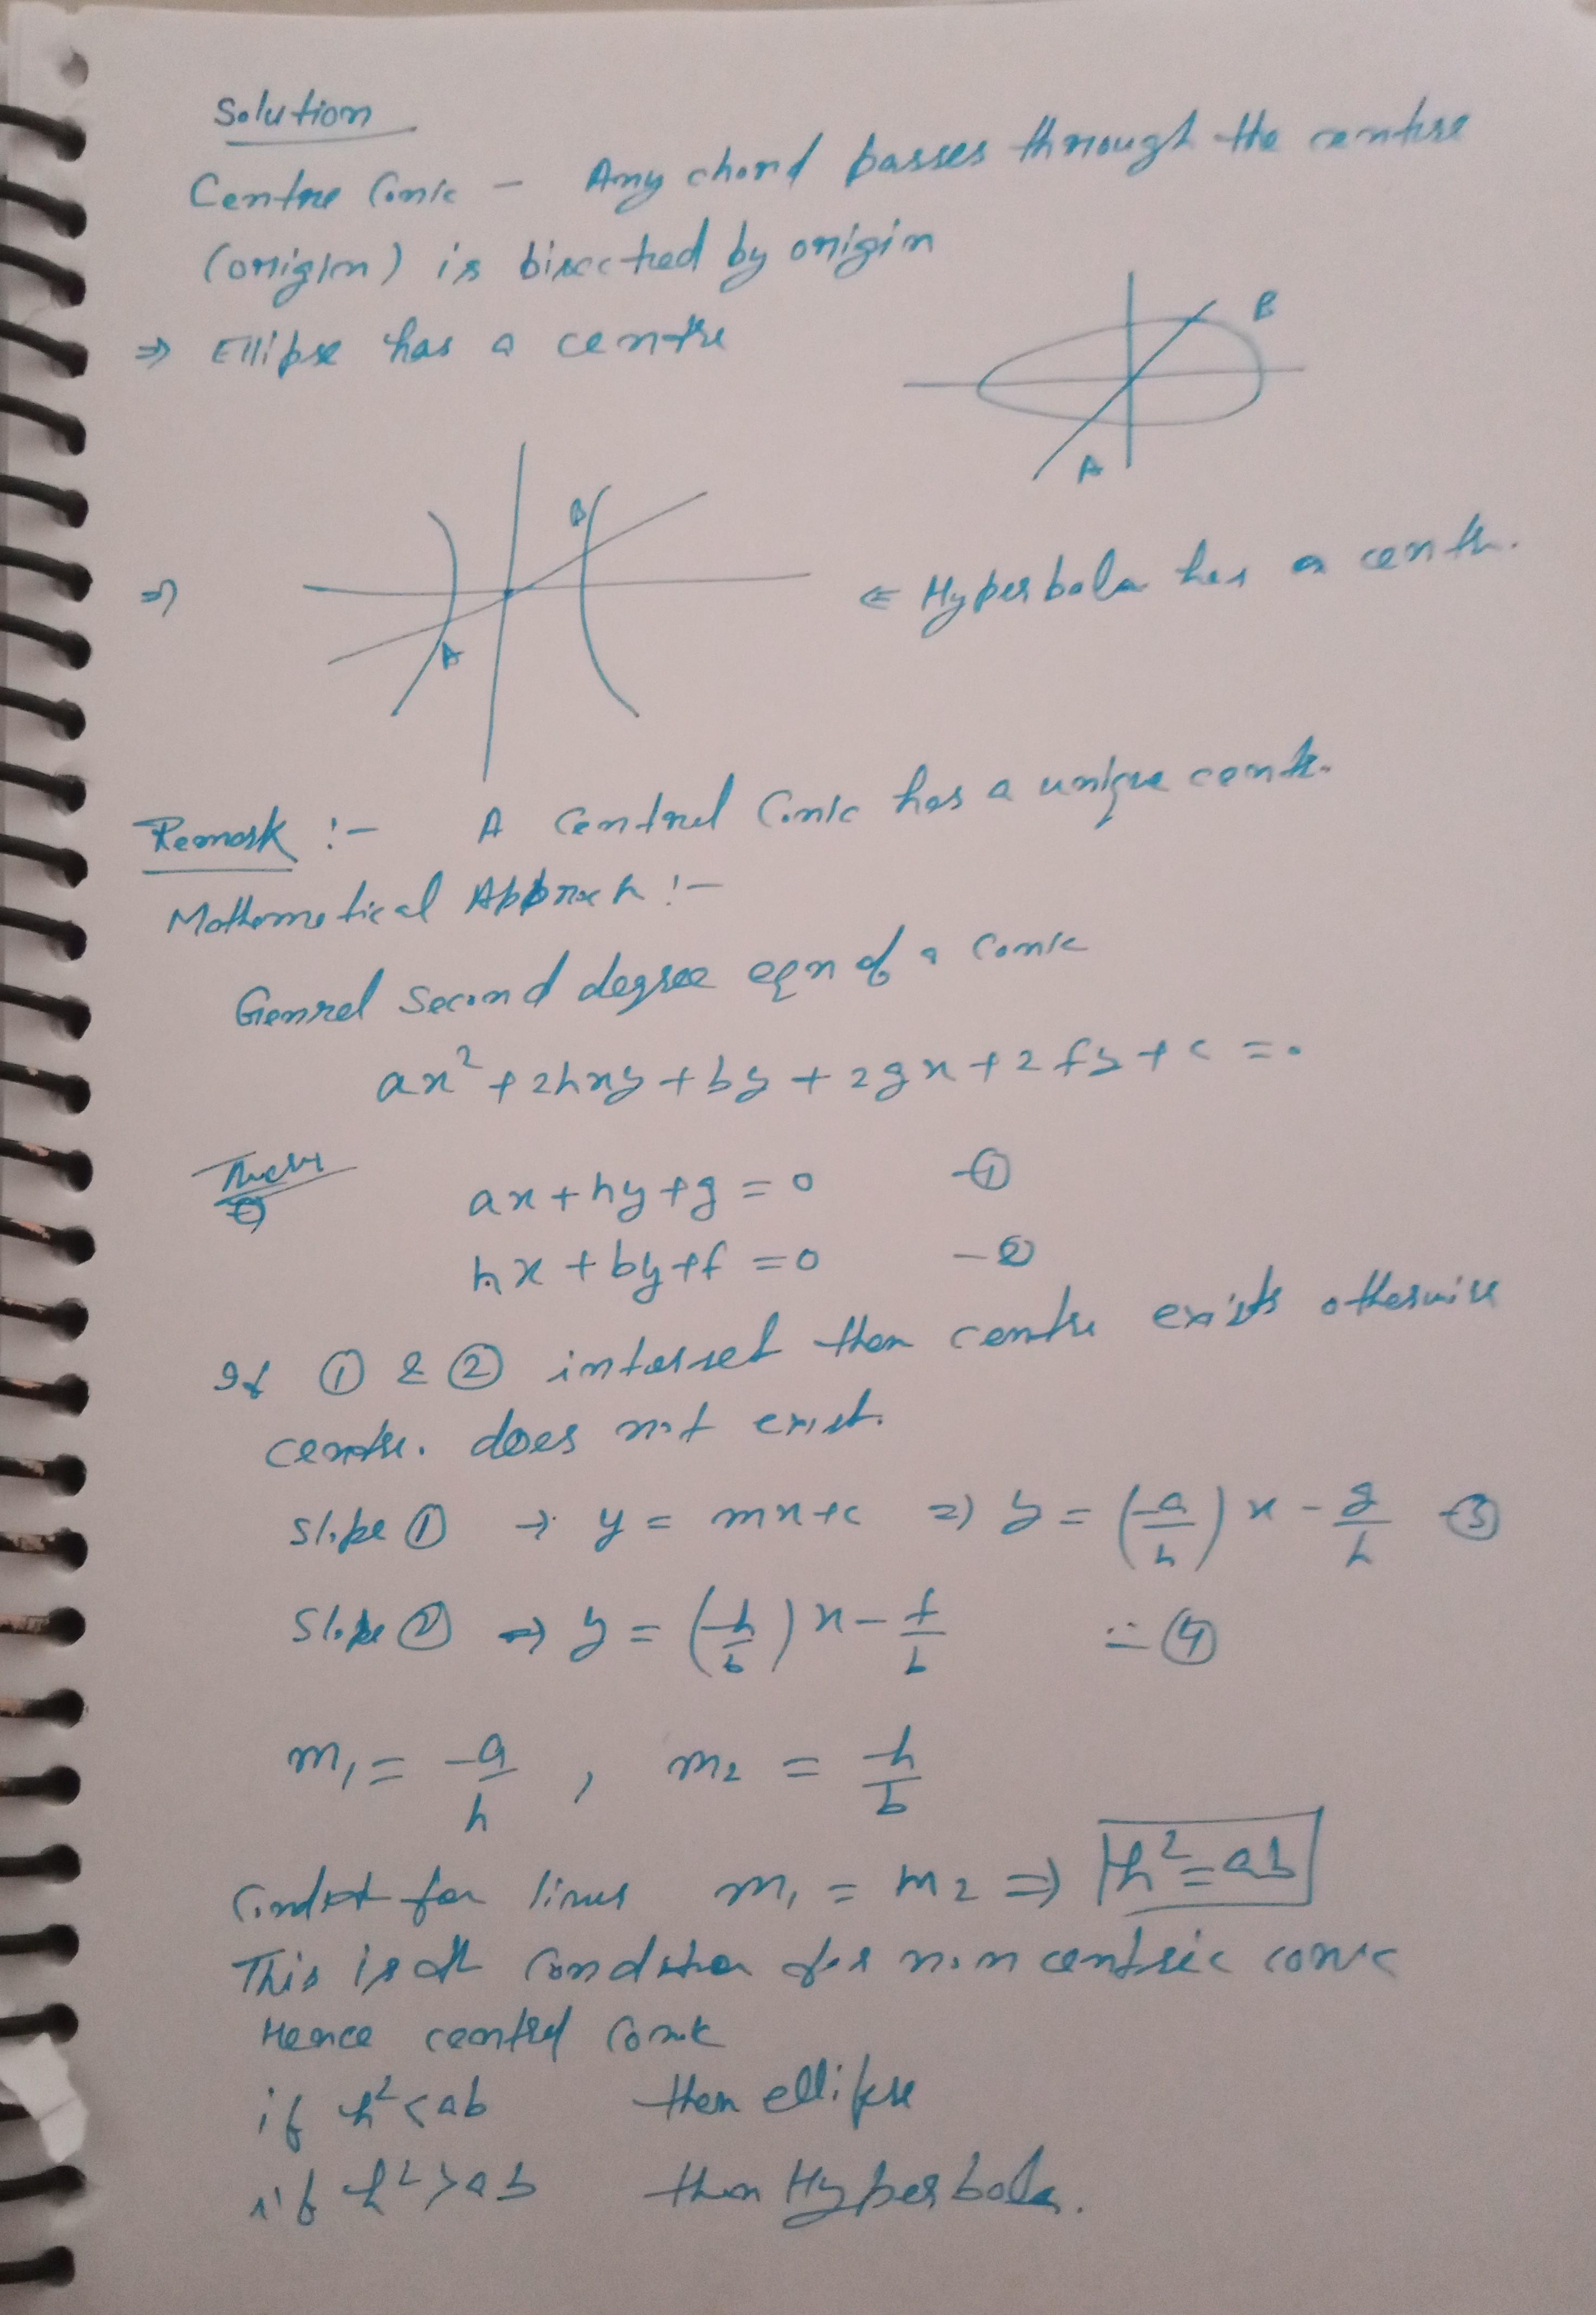 Solution
Centre Conic - Any chord passes through the centre
(origin) is bisected by origin
⇒ Ellipse has a centre
B
A
B
⇒ ⇐ Hyperbola has a centr.
A
Remark :- A Central Conic has a unique centr.
Mathematical Approach :-
Genrel Second degree eqn of a Conic
ax² + 2hxy + by + 2gx + 2fy + c = 0
ax + hy + g = 0 -①
hx + by + f = 0 -②
If ① & ② interset then centre exists otherwise
centre. does not exist.
Slope ① → y = mx+c ⇒ y = (-a/h) x - g/h -③
Slope ② ⇒ y = (-h/b) x - f/b -④
m₁ = -a/h , m₂ = -h/b
for lines m₁ = m₂ ⇒ h² = ab
This is th Condition for non centric conic
Hence central Conic
if h² < ab then ellipse
if h² > ab then Hyperbola.